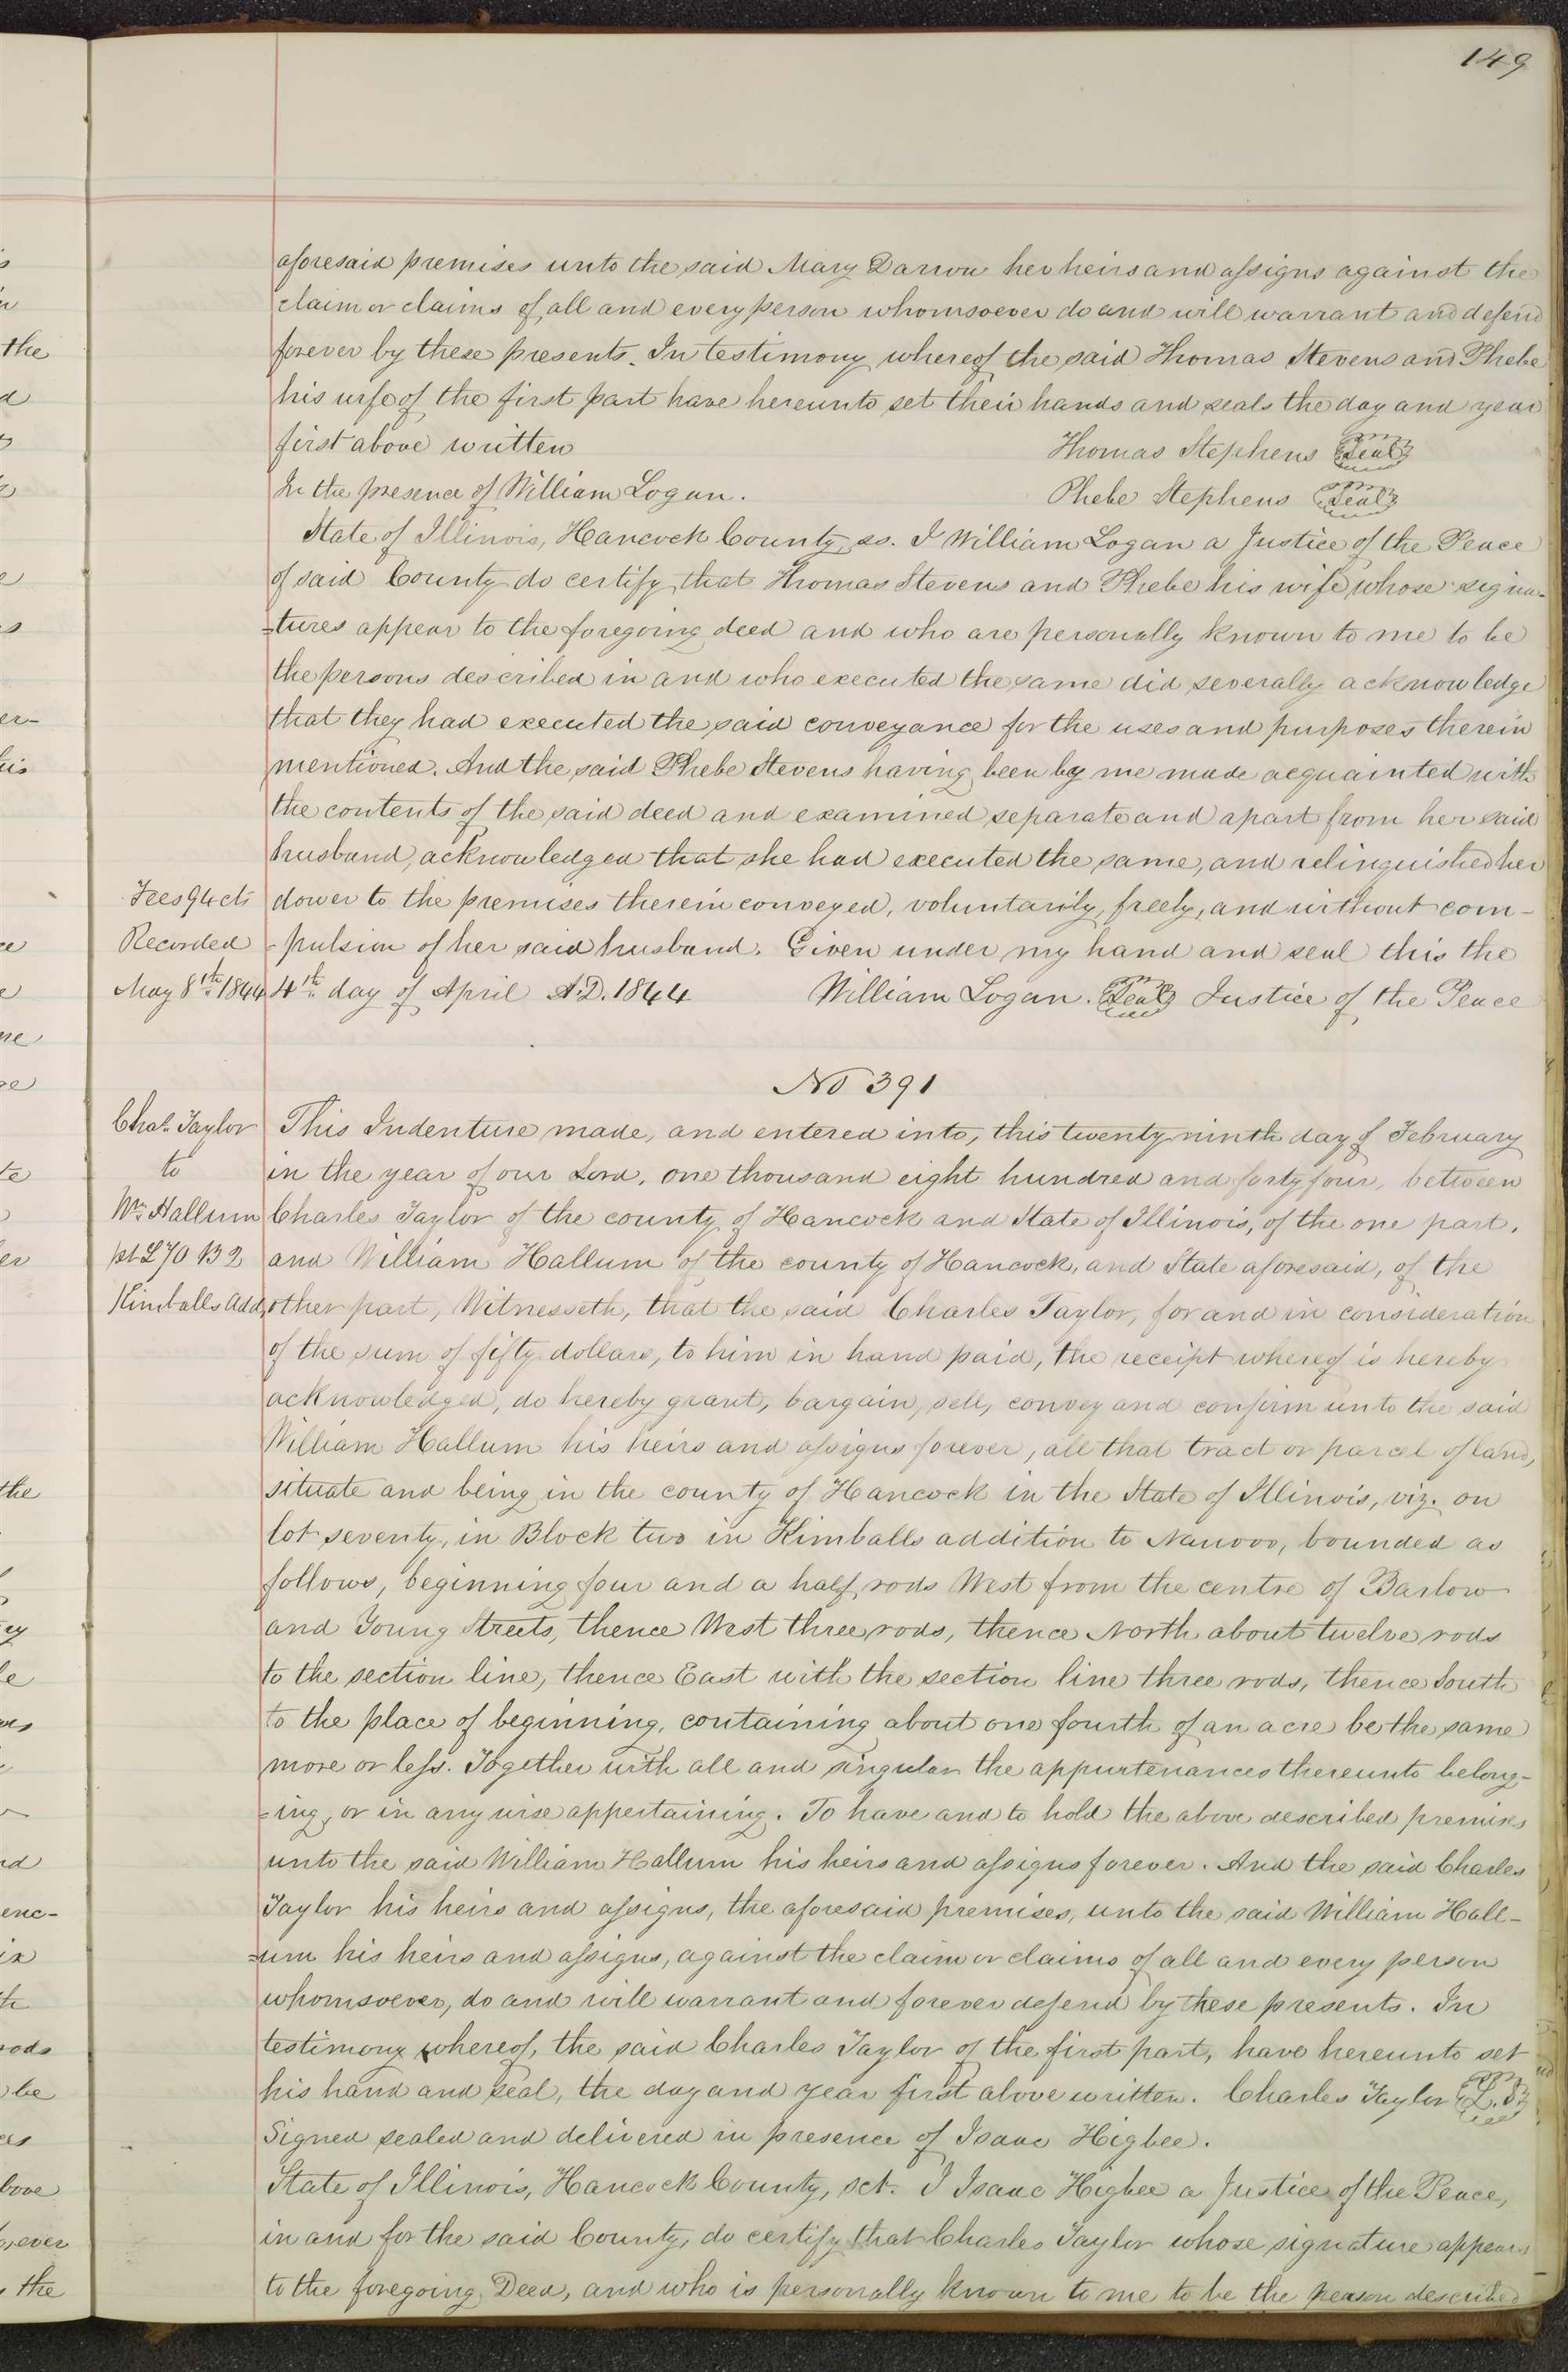 149
aforesaid premises unto the said Mary Darrow her heirs and assigns against the
claim or claims of all and every person whomsoever do and will warrant and defend
forever by these presents. In testimony whereof the said Thomas Stevens and Phebe
his wife of the first part have hereunto set their hands and seals the day and year
first above written Thomas Stephens Seal
In the presence of William Logan. Phebe Stephens Seal
State of Illinois, Hancock County, ss. I William Logan a Justice of the Peace
of said County do certify that Thomas Stevens and Phebe his wife whose signa-
=tures appear to the foregoing deed and who are personally known to me to be
the persons described in and who executed the same did severally acknowledge
that they had executed the said conveyance for the uses and purposes therein
mentioned. And the said Phebe Stevens having been by me made acquainted with
the contents of the said deed and examined separate and apart from her said
husband, acknowledged that she had executed the same, and relinquished her
Fees 94 cts dower to the premises therein conveyed, voluntarily, freely, and without com-
Recorded -pulsion of her said husband. Given under my hand and seal this the
May 8th 1844 4th day of April A.D. 1844 William Logan. Seal Justice of the Peace
No 391
Chas. Taylor This Indenture made, and entered into, this twenty ninth day of February
to in the year of our Lord, one thousand eight hundred and forty four, between
Wm Hallum Charles Taylor of the county of Hancock and State of Illinois, of the one part,
pt L 70 B 2 and William Hallum of the county of Hancock, and State aforesaid, of the
Kimballs Add. other part, Witnesseth, that the said Charles Taylor, for and in consideration
of the sum of fifty dollars, to him in hand paid, the receipt whereof is hereby
acknowledged, do hereby grant, bargain, sell, convey and confirm unto the said
William Hallum his heirs and assigns forever, all that tract or parcel of land,
situate and being in the county of Hancock in the State of Illinois, viz. on
lot seventy, in Block two in Kimballs addition to Nauvoo, bounded as
follows, beginning four and a half rods West from the centre of Barlow
and Young Streets, thence West three rods, thence North about twelve rods
to the section line, thence East with the section line three rods, thence South
to the place of beginning, containing about one fourth of an acre be the same
more or less. Together with all and singular the appurtenances thereunto belong-
=ing, or in any wise appertaining. To have and to hold the above described premises
unto the said William Hallum his heirs and assigns forever. And the said Charles
Taylor his heirs and assigns, the aforesaid premises, unto the said William Hall-
=um his heirs and assigns, against the claim or claims of all and every person
whomsoever, do and will warrant and forever defend by these presents. In
testimony whereof, the said Charles Taylor of the first part, have hereunto set
his hand and seal, the day and year first above written. Charles Taylor L.S.
Signed sealed and delivered in presence of Isaac Higbee.
State of Illinois, Hancock County, sct. I Isaac Higbee a Justice of the Peace,
in and for the said County, do certify that Charles Taylor whose signature appears
to the foregoing Deed, and who is personally known to me to be the person described